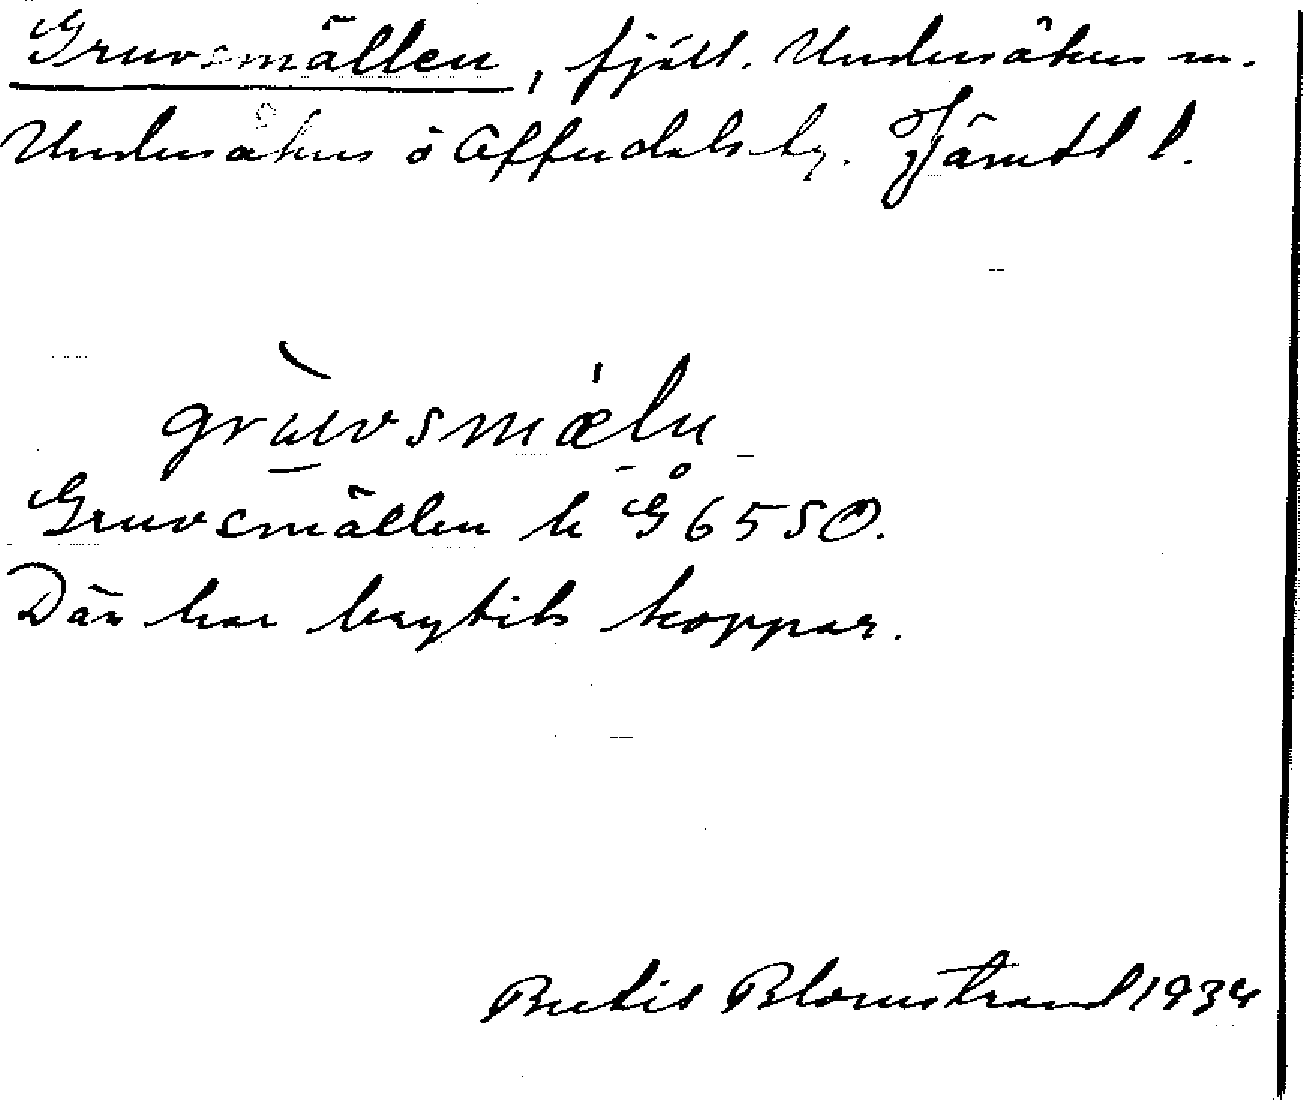 Gruvsmällen, fjäll. Undersåkers sn.
Undersåkers o Offerdals tg. Jämtl l.
grùvsmæln
Gruvsmällen k G 6550.
Där har brytits koppar.
Bertil Blomstrand 1934